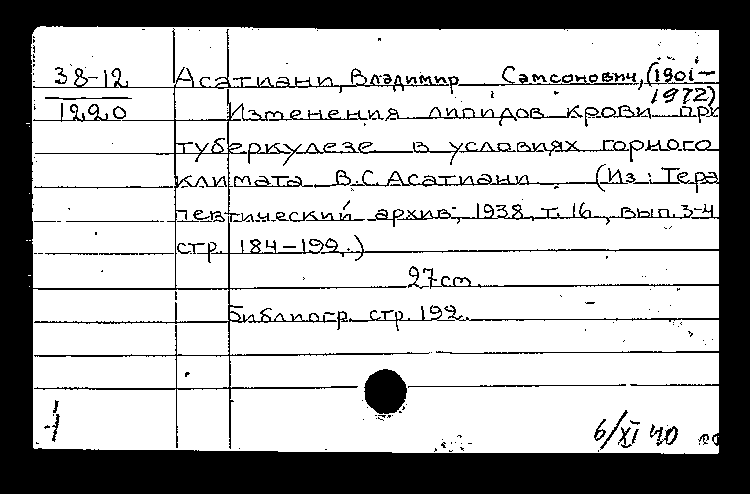 38-12
1220
Асатиани, Владимир Самсонович, (1901-
1972)
Изменения липидов крови при
туберкулезе в условиях горного
климата В.С. Асатиани. (Из: Тера
певтический архив, 1938, т. 16, вып. 3-4
стр. 184-199.)
27 cm.
Библиогр. стр. 199.
6/XI 40